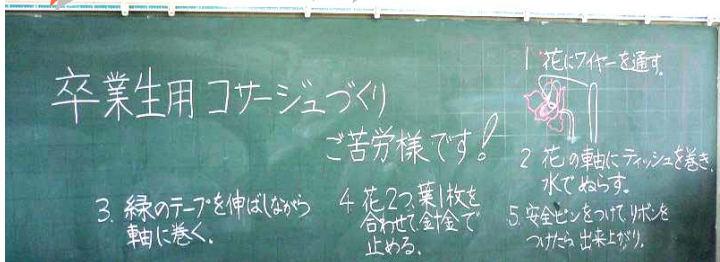 卒業生用 コサージュづくり
ご苦労様です!
1 花にワイヤーを通す。
2 花の軸にティッシュを巻き、
水でぬらす。
3. 緑のテープを伸ばしながら
軸に巻く。
4 花2つ、葉1枚を
合わせて、針金で
止める。
5. 安全ピンをつけて、リボンを
つけたら 出来上がり。